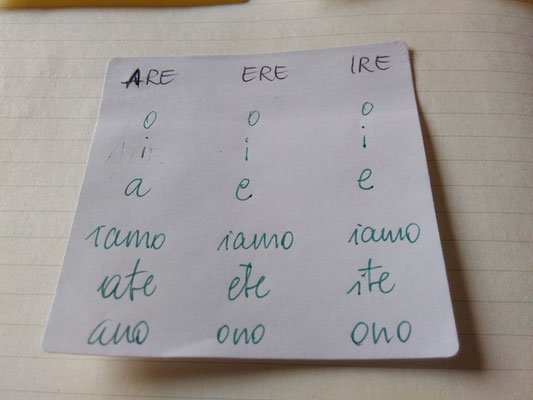 ARE ERE IRE
o o o
i i i
a e e
iamo iamo iamo
iate ete ite
ano ono ono